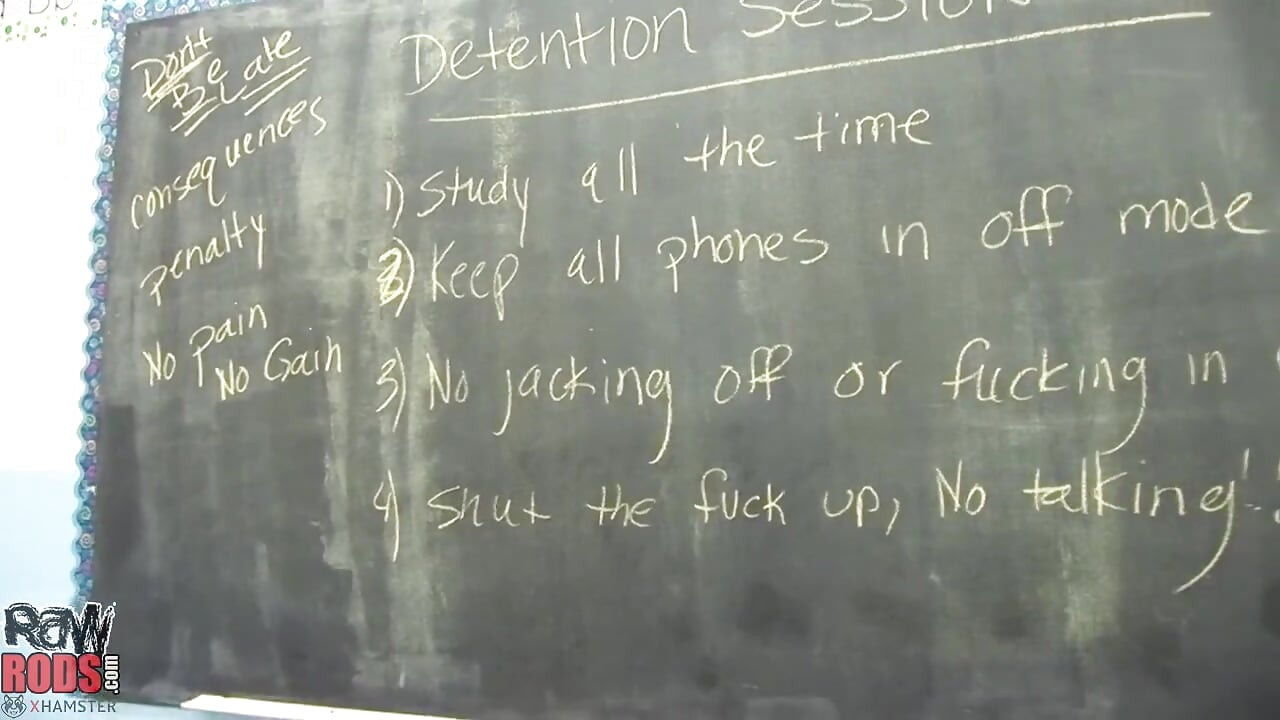 Don't
Be Late
consequences
penalty
No pain
No Gain
Detention Session
1) Study all the time
2) Keep all phones in off mode
3) No jacking off or fucking in
4) Shut the fuck up, No talking!
RAW
RODS.com
XHAMSTER